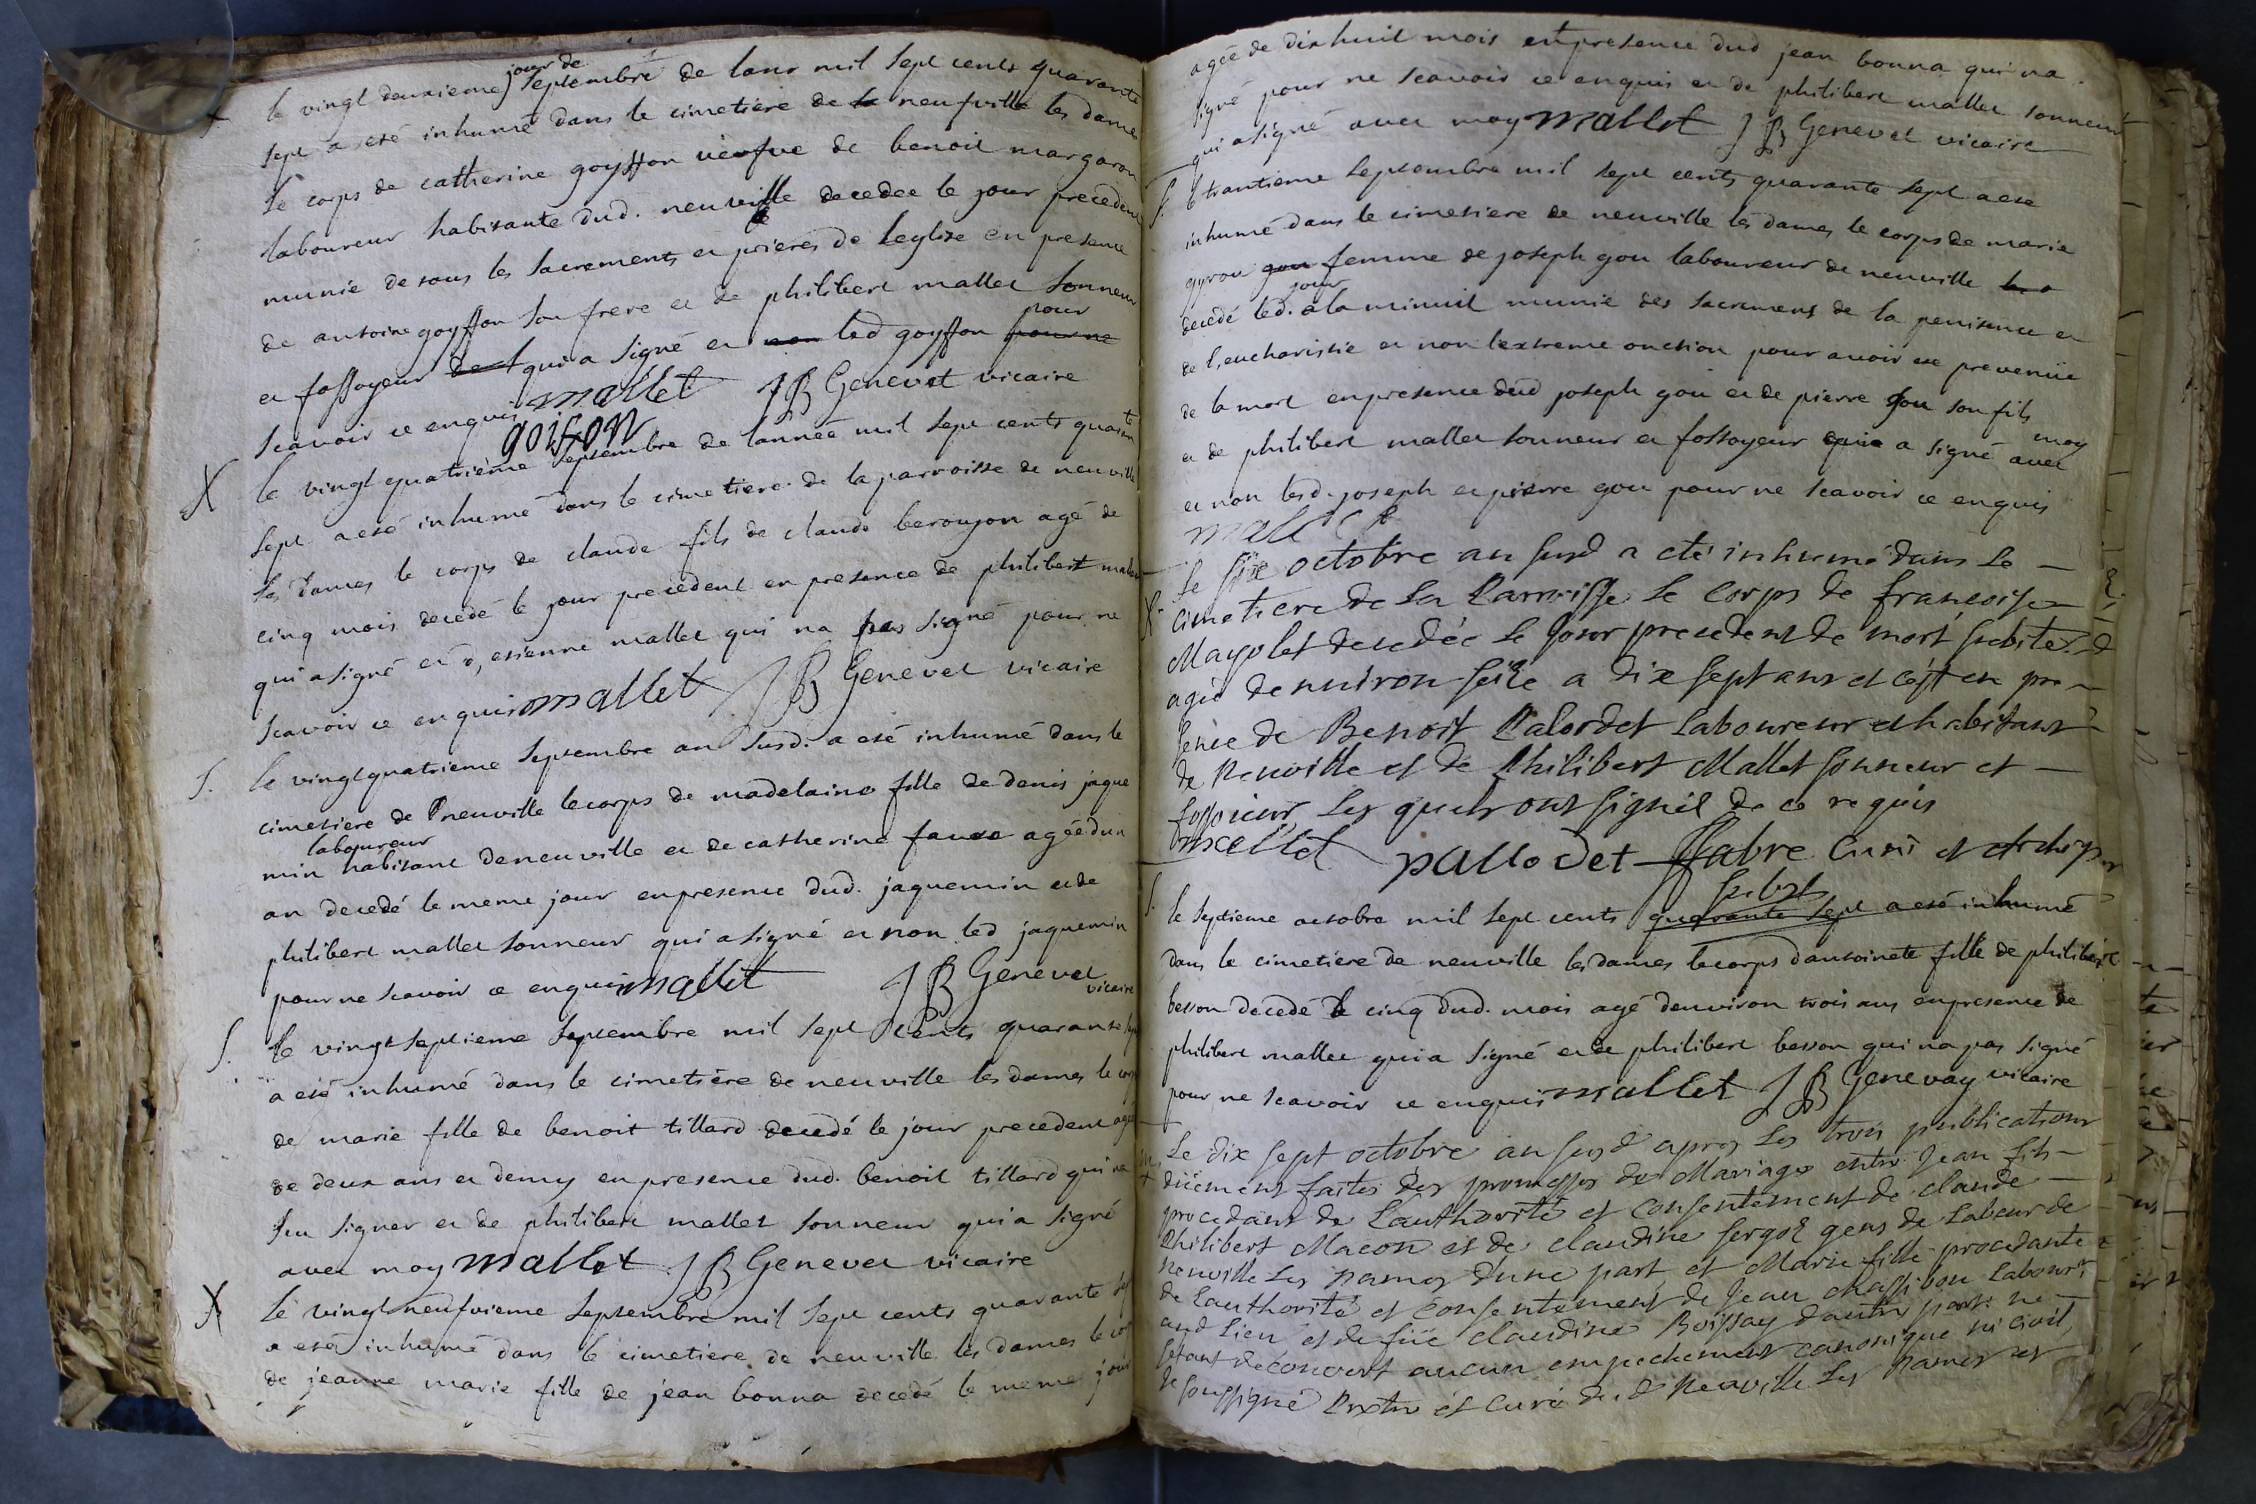 le vingt deuxieme jour de septembre de lanr mil sept cents quarante
sept a eté inhumé dans le cimetiere de la neufville les dames
le corps de catherine goyffon veufve de benoit margaron
laboureur habitante dud. neuville decedee le jour precedent
munie de tous les sacrements et prieres de leglise en presence
de antoine goyffon son frere et de philibert mallet sonneur
et fossoyeur qui a signé et led goyffon pour
scavoir ce enquis mallet J B Genevet vicaire
goifon
le vingt quatrième septembre de lannee mil sept cents quarante
sept a eté inhumé dans le cimetiere de la parroisse de neuville
les dames le corps de claude fils de claude beroujon agé de
cinq mois decedé le jour precedent en presence de philibert mallet
qui a signé et d, etienne mallet qui na pas signé pour ne
scavoir ce enquis mallet J B Genevet vicaire
S. le vingt quatrieme septembre an susd. a eté inhumé dans le
cimetiere de neuville le corps de madelaine fille de denis jaque
min laboureur habitant de neuville et de catherine fause agée dun
an decedé le meme jour en presence dud. jaquemin et de
philibert mallet sonneur qui a signé et non led jaquemin
pour ne scavoir ce enquis mallet J B Genevet vicaire
S. le vingt septieme septembre mil sept cents quarante sept
a eté inhumé dans le cimetière de neuville les dames le corps
de marie fille de benoit tillard decedé le jour precedent agée
de deux ans et demy en presence dud. benoit tillard qui na
scu signer et de philibert mallet sonneur qui a signé
avec moy mallet J B Genevet vicaire
X le vingt neufvieme septembre mil sept cents quarante sept
a eté inhumé dans le cimetiere de neuville les dames le corps
de jeanne marie fille de jean bonna decedé le meme jour
agée de dix huit mois en presence dud jean bonna qui na
signé pour ne scavoir ce enquis et de philibert mallet sonneur
qui a signé avec moy mallet J B Genevet vicaire
S. le trantieme septembre mil sept cents quarante sept a eté
inhumé dans le cimetiere de neuville les dames le corps de marie
gyrou gou femme de joseph gou laboureur de neuville
decedé led. jour a la minuit munie des sacremens de la penitence et
de l'eucharistie et non lextreme onction pour avoir eté prevenüe
de la mort en presence dud joseph gou et de pierre gou son fils
et de philibert mallet sonneur et fossoyeur qui a signé avec moy
et non lesd. joseph et pierre gou pour ne scavoir ce enquis
mallet
le six octobre an susd a eté inhumé dans le
X cimetiere de la Parroisse le corps de francoise
Mayolet decedée le jour precedent de mort subite
agée denviron seize a dix sept ans et cest en pre
sence de Benoit Palordet laboureur et habitant
de Neuville et de Philibert Mallet sonneur et
fossoieur, les quels ont signé de ce requis
mallet pallodet ffabre curé et archip.
S. le septieme octobre mil sept cents quarante sept a eté inhumé
dans le cimetiere de neuville les dames le corps dantoinete fille de philibert
besson decedé le cinq dud. mois agé denviron trois ans en presence de
philibert mallet qui a signé et de philibert besson qui na pas signé
pour ne scavoir ce enquis mallet J B Genevay vicaire
Le dix sept octobre an susd apres les trois publications
düement faites des promesses de Mariage entre Jean fils
procedant de Lauthorité et consentement de claude
Philibert Macon et de claudine sergoz gens de Labeur de
neuville les Dames dune part, et Marie fille procedante
de Lauthorité et consentement de Jean Chassibou Labourr
aud lieu et de füe claudine Boissay dautre part. ne
setant decouvert aucun empechement canonique ni civil,
Je soussigné Prxtre et curé dud Neuville les Dames et